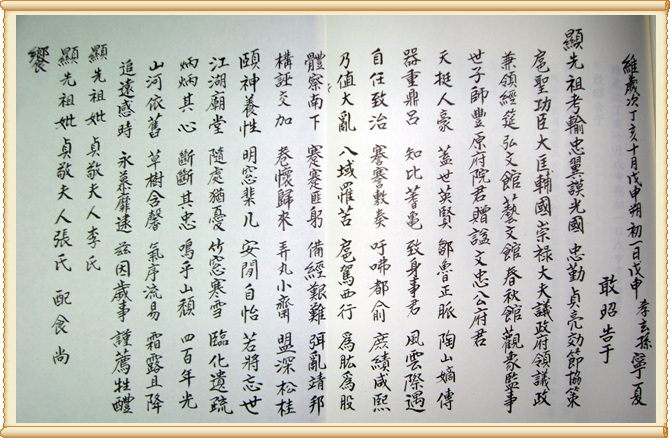 維歲次丁亥十月戊申朔初一日戊申 孝玄孫寧夏
敢昭告于
顯先祖考輸忠翼謨光國 忠勤貞亮効節協策
扈聖功臣大匡輔國崇祿大夫議政府領議政
兼領經筵弘文館藝文館春秋館觀象監事
世子師豐原府院君贈諡文忠公府君
天挺人豪 蓋世英賢 鄒魯正脈 陶山嫡傳
器重鼎呂 知比蓍龜 致身事君 風雲際遇
自任致治 謇謇敷奏 吁咈都俞 庶績咸熙
乃值大亂 八域罹苦 扈駕西行 爲肱爲股
體察南下 蹇蹇匪躬 備經艱難 弭亂靖邦
構誣交加 卷懷歸來 弄丸小齋 盟深松桂
頤神養性 明窓棐几 安閒自怡 若將忘世
江湖廟堂 隨處猶憂 竹窓寒雪 臨化遺疏
炳炳其心 斷斷其忠 嗚乎山頹 四百年光
山河依舊 草樹含馨 氣序流易 霜露且降
追遠感時 永慕靡逮 玆因歲事 謹薦牲醴
顯先祖妣 貞敬夫人李氏
顯先祖妣 貞敬夫人張氏 配食尚
饗